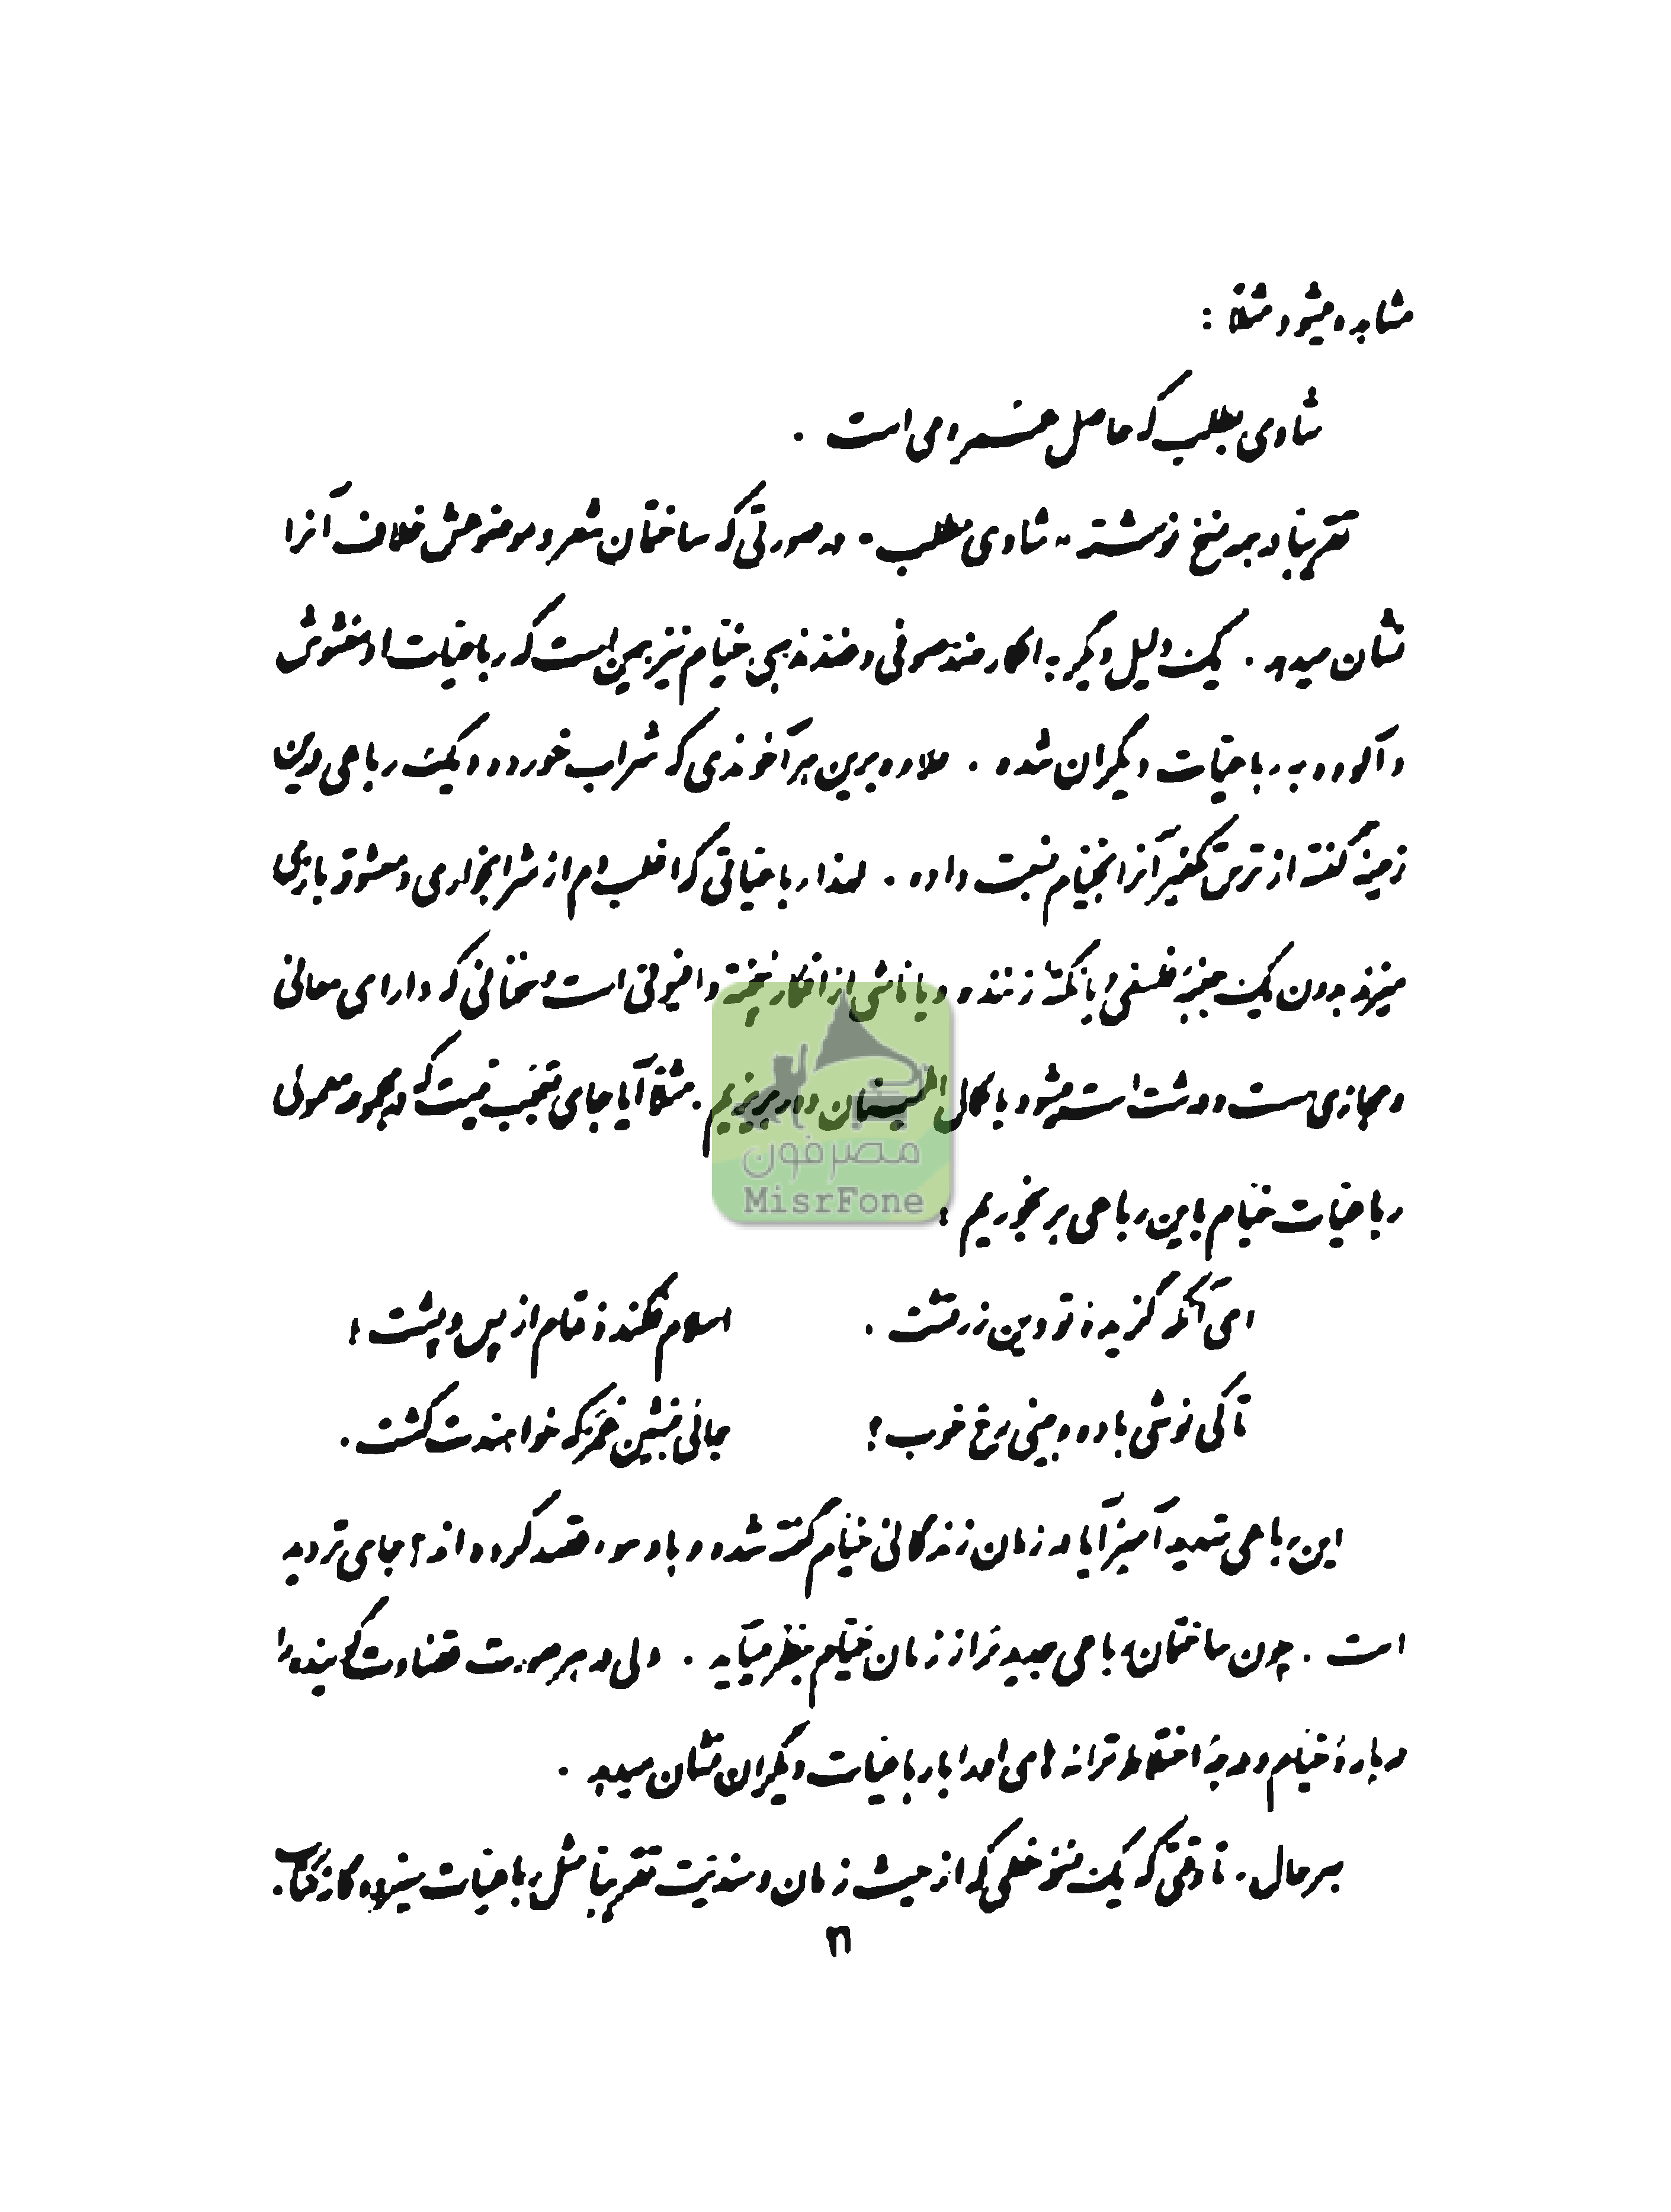 مشاهده میشود مثلا :
شادی بطلب که حاصل عمر دمی است .
تقریبا در همه نسخ نوشته " شادی مطلب " در صورتی که ساختمان شعر و موضوعش خلاف آنرا
نشان میدهد . یک دلیل دیگر به افکار ضد صوفی و ضد مذهبی خیام نیز همین است که رباعیات او مغشوش
و آلوده به رباعیات دیگران شده . علاوه برین هر آخوندی که شراب خورده و یک رباعی درین
زمینه گفته از ترس تکفیر آنرا بخیام نسبت داده . لهذا رباعیاتی که اغلب دم از شرابخواری و معشوقه بازی
میزند بدون یک جنبه فلسفی و یا نکته زننده و یا ناشی از افکار نپخته و افیونی است و سخنانی که دارای معانی
و مجازی سست و درشت است میشود با کمال اطمینان دور بریزیم . مثلا آیا جای تعجب نیست که در مجموعه معمولی
رباعیات خیام باین رباعی بر بخوریم :
ای آنکه گزیده‌ئی تو دین زرتشت . اسلام فکنده‌ئی تمام از پس و پشت ؛
تا کی نوشی باده و بینی رخ خوب ؟ جائی بنشین عمر که خواهندت کشت .
این رباعی تهدید آمیز آیا در زمان زندگانی خیام گفته شده و باو سوء قصد کرده‌اند ؟ جای تردید
است . چون ساختمان رباعی جدیدتر از زمان خیام بنظر میآید . ولی در هر صورت قضاوت گوینده را
درباره خیام و درجه اختلاط ترانه های او را با رباعیات دیگران نشان میدهد .
بهرحال . تا وقتی که یک نسخه خطی که از حیث زمان و سندیت تقریبا مثل رباعیات سیزده گانه کتاب
۲۱
مصرفون
MisrFone